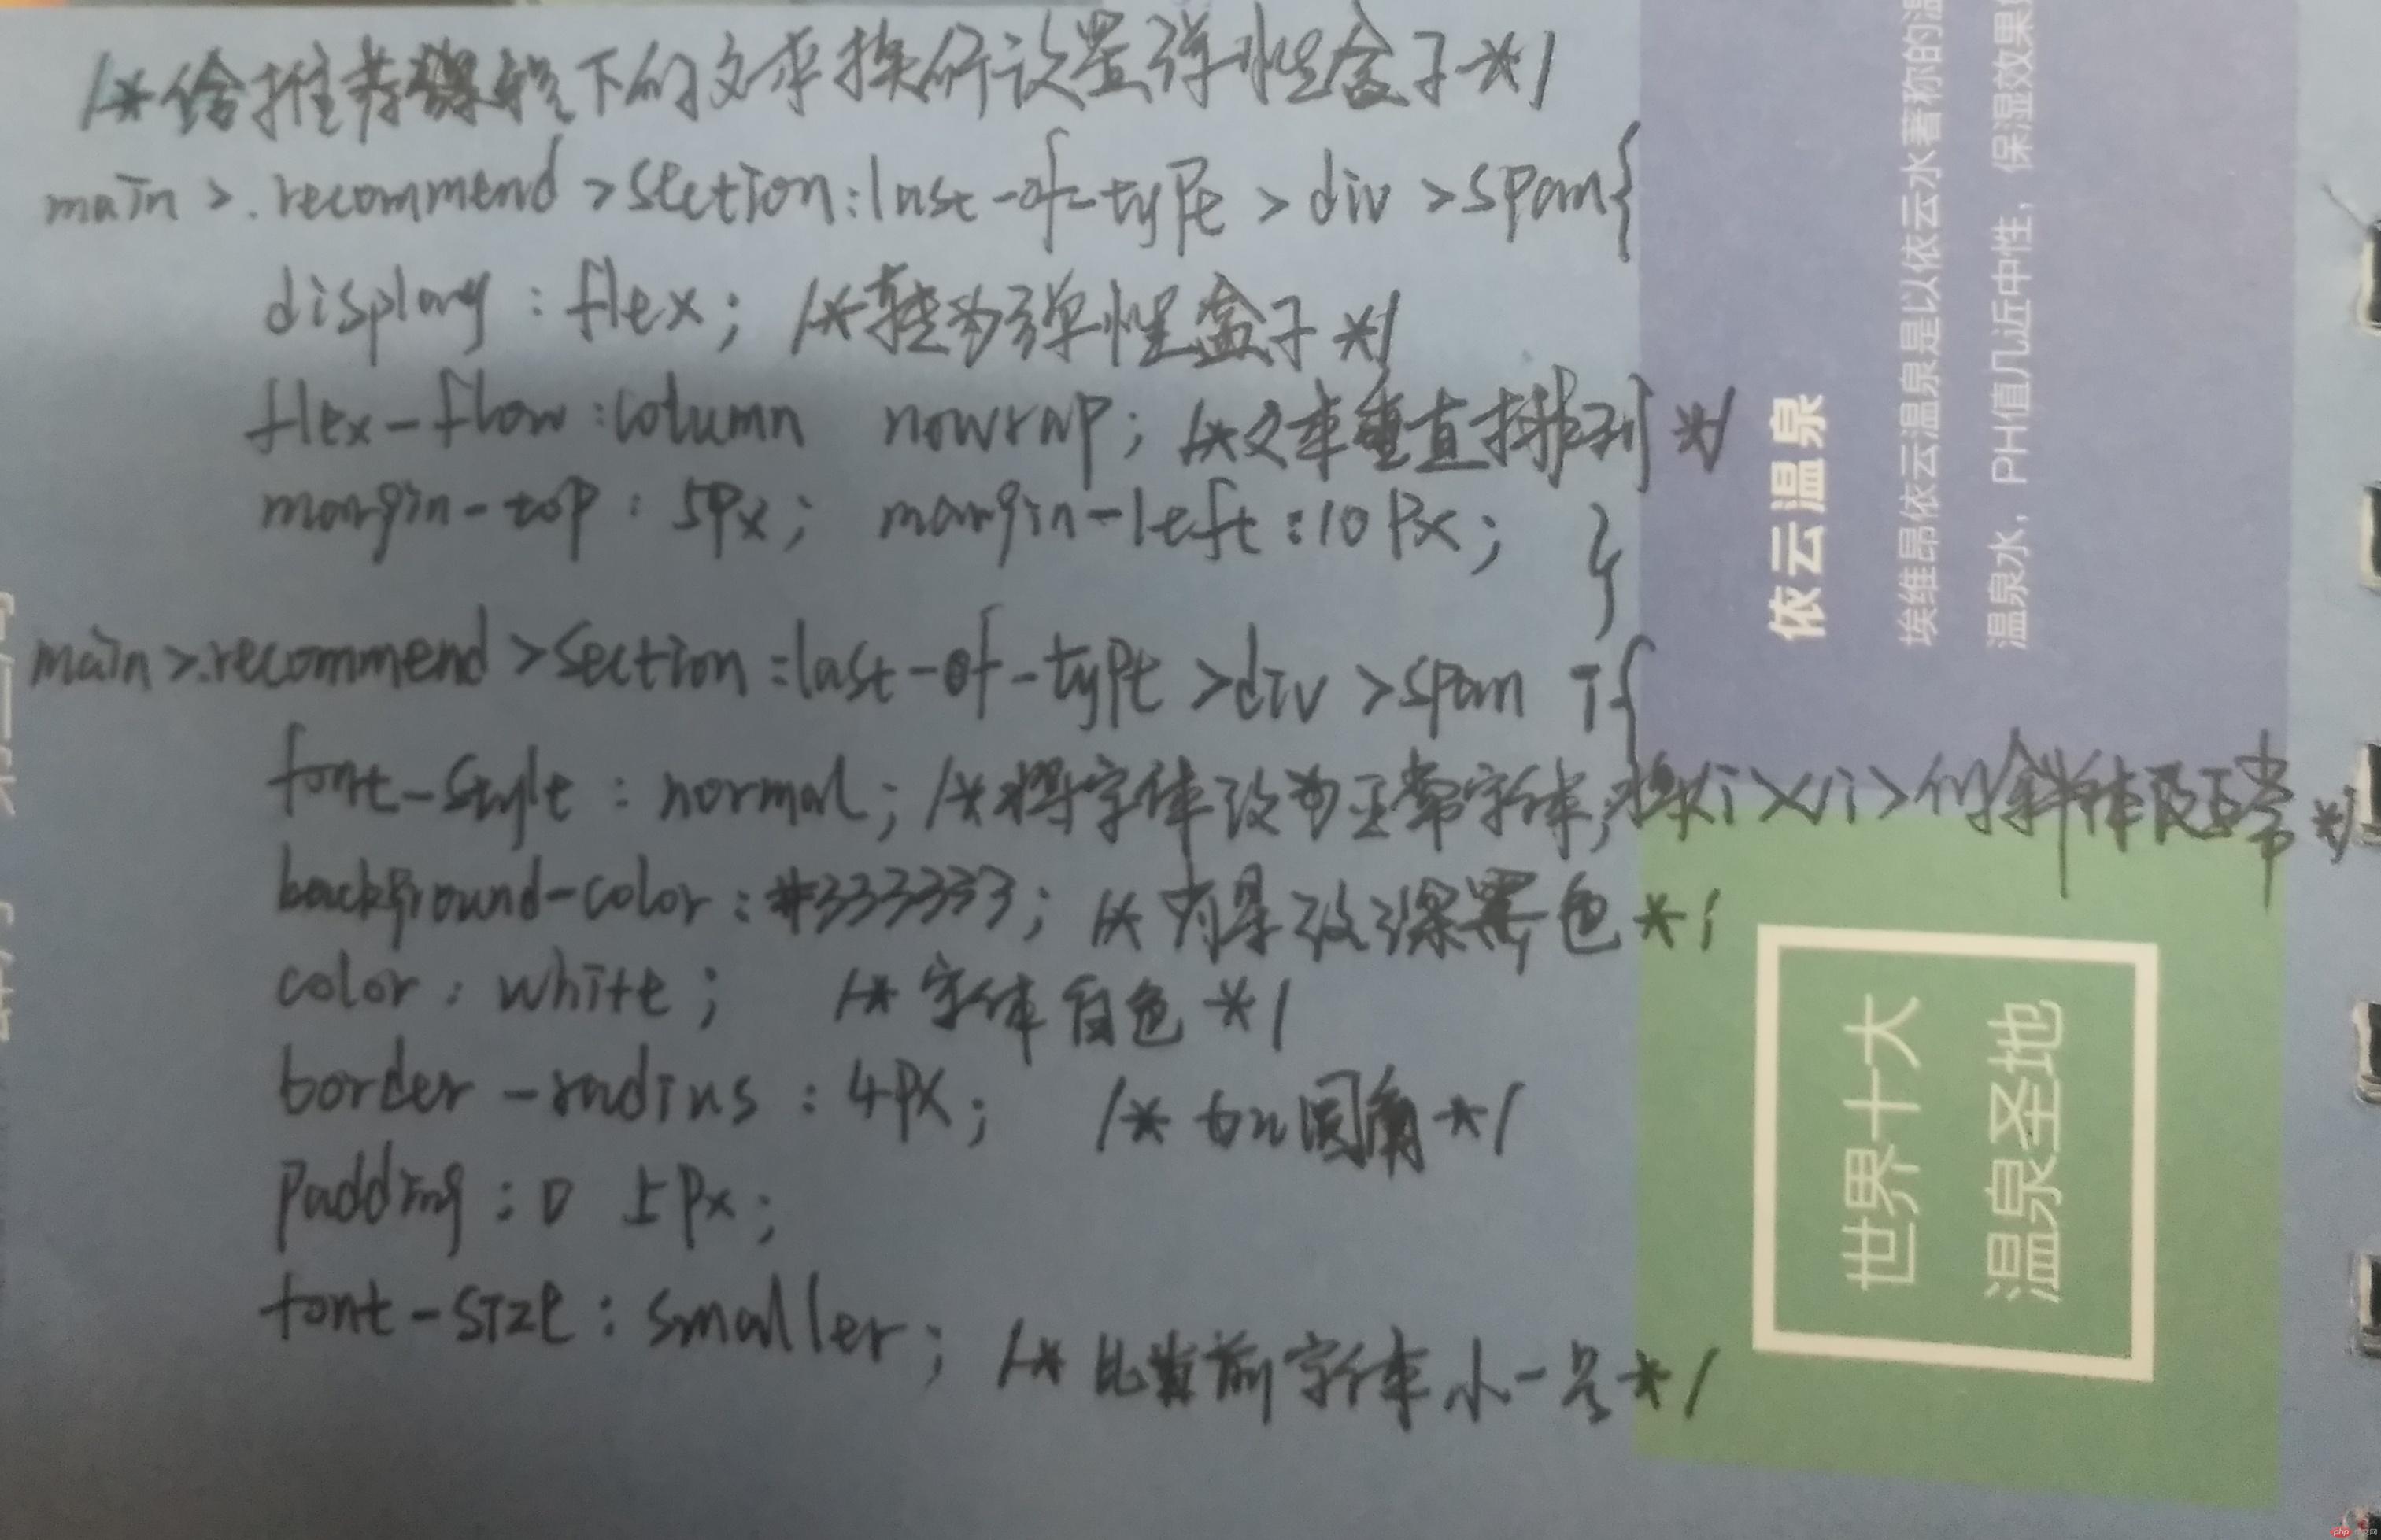 /*给推荐课程下的文本换行设置弹性盒子*/
main >.recommend >section:last-of-type > div >span{
display : flex; /*转为弹性盒子*/
flex-flow:column nowrap; /*文本垂直排列*/
margin-top : 5px; margin-left:10px; }
main >.recommend >section:last-of-type >div >span i{
font-style : normal; /*将字体改为正常字体,将<i></i>的斜体改正常*/
background-color : #333333; /*背景改深黑色*/
color : white; /*字体白色*/
border-radius : 4px; /*加圆角*/
padding : 0 5px;
font-size : smaller; /*比当前字体小一号*/
依云温泉
埃维昂依云温泉是以依云水著称的温
温泉水，PH值几近中性，保湿效果
世界十大
温泉圣地